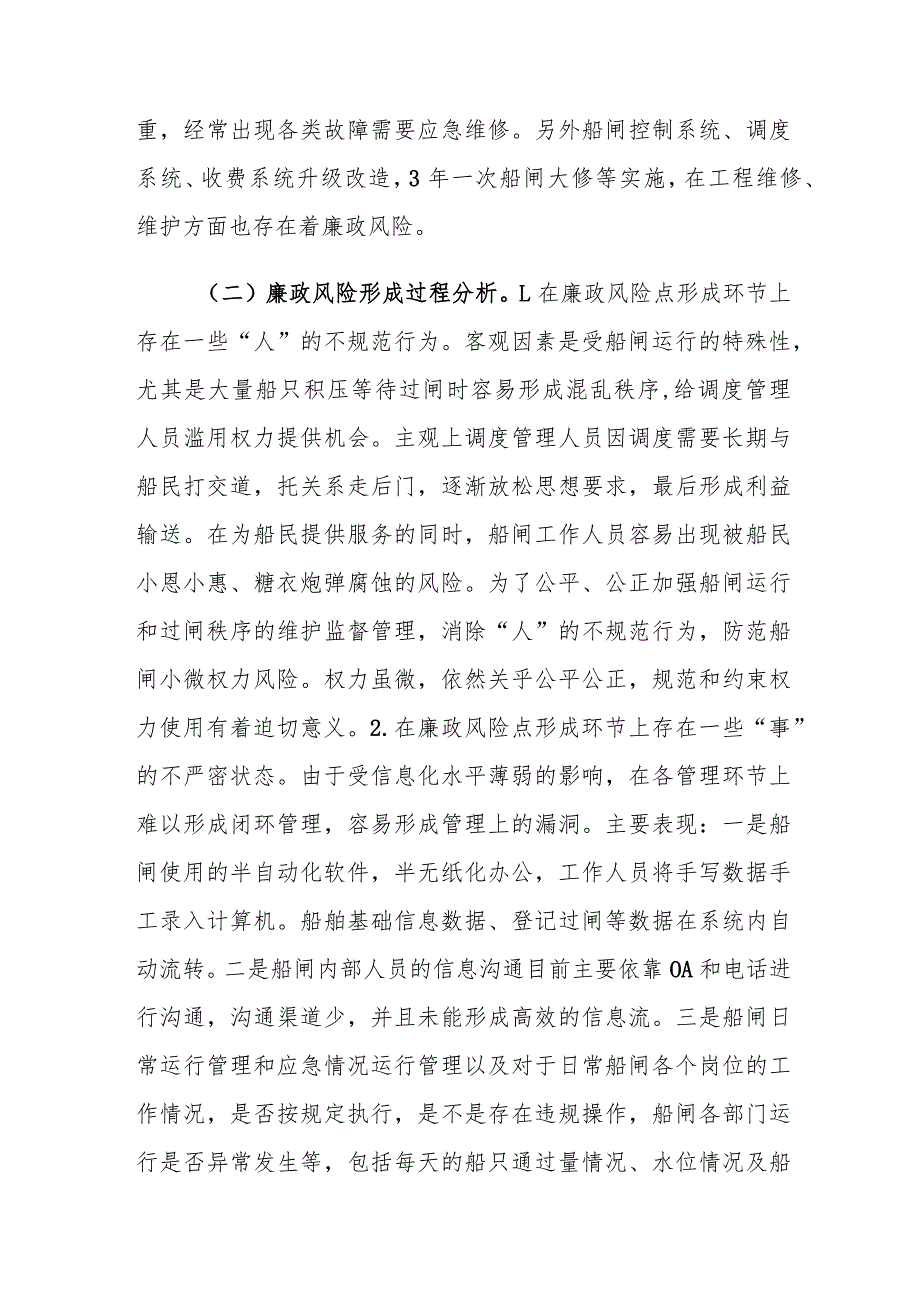 重，经常出现各类故障需要应急维修。另外船闸控制系统、调度
系统、收费系统升级改造，3 年一次船闸大修等实施，在工程维修、
维护方面也存在着廉政风险。
（二）廉政风险形成过程分析。L 在廉政风险点形成环节上
存在一些“人”的不规范行为。客观因素是受船闸运行的特殊性，
尤其是大量船只积压等待过闸时容易形成混乱秩序,给调度管理
人员滥用权力提供机会。主观上调度管理人员因调度需要长期与
船民打交道，托关系走后门，逐渐放松思想要求，最后形成利益
输送。在为船民提供服务的同时，船闸工作人员容易出现被船民
小恩小惠、糖衣炮弹腐蚀的风险。为了公平、公正加强船闸运行
和过闸秩序的维护监督管理，消除“人”的不规范行为，防范船
闸小微权力风险。权力虽微，依然关乎公平公正，规范和约束权
力使用有着迫切意义。2.在廉政风险点形成环节上存在一些“事”
的不严密状态。由于受信息化水平薄弱的影响，在各管理环节上
难以形成闭环管理，容易形成管理上的漏洞。主要表现：一是船
闸使用的半自动化软件，半无纸化办公，工作人员将手写数据手
工录入计算机。船舶基础信息数据、登记过闸等数据在系统内自
动流转。二是船闸内部人员的信息沟通目前主要依靠 OA 和电话进
行沟通，沟通渠道少，并且未能形成高效的信息流。三是船闸日
常运行管理和应急情况运行管理以及对于日常船闸各个岗位的工
作情况，是否按规定执行，是不是存在违规操作，船闸各部门运
行是否异常发生等，包括每天的船只通过量情况、水位情况及船